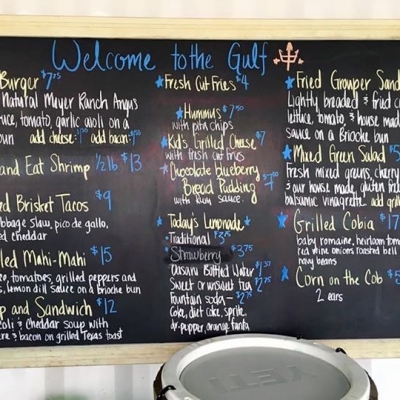 Welcome to the Gulf
Burger $7.75
Natural Meyer Ranch Angus
lettuce, tomato, garlic aioli on a
bun add cheese $1.00 add bacon
and Eat Shrimp 1/2 lb $13
d Brisket Tacos $9
cabbage slaw, pico de gallo,
cheddar
lled Mahi-Mahi $15
tomatoes, grilled peppers and
lemon dill sauce on a Brioche bun
p and Sandwich $12
coli & cheddar soup with
e & bacon on grilled Texas toast
Fresh Cut Fries $4
Hummus $7.50
with pita chips
Kid's Grilled Cheese $7
with fresh cut fries
Chocolate blueberry
Bread Pudding
with rum sauce.
Today's Lemonade
Traditional
Strawberry $3.75
Dasani Bottled Water
Sweet or unsweet tea $2.75
fountain soda $2.75
Coke, diet coke, sprite
dr. pepper, orange fanta
Fried Grouper Sand
Lightly breaded & fried
lettuce, tomato, & house mad
sauce on a Brioche bun
Mixed Green Salad $
Fresh mixed greens, cherry
& our house made, gluten fre
balsamic vinegrette add gril
Grilled Cobia $17
baby romaine, heirloom tom
red wine onions roasted bell
navy beans
Corn on the Cob $5
2 ears
YETI